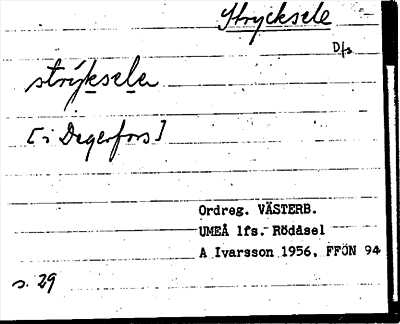 Strycksele
D/s
strýksela
[i Degerfors]
Ordreg. VÄSTERB.
UMEÅ lfs. Rödåsel
A Ivarsson 1956, FFÖN 94
s. 29